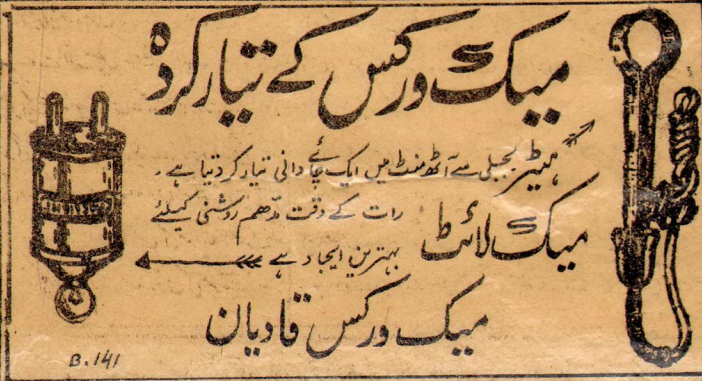 میک ورکس کے تیار کردہ
ہیٹر بجلی سے آٹھ منٹ میں ایک چائے دانی تیار کر دیتا ہے۔
میک لائٹ رات کے وقت مدّھم روشنی کیلئے
بہترین ایجاد ہے
میک ورکس قادیان
B.141